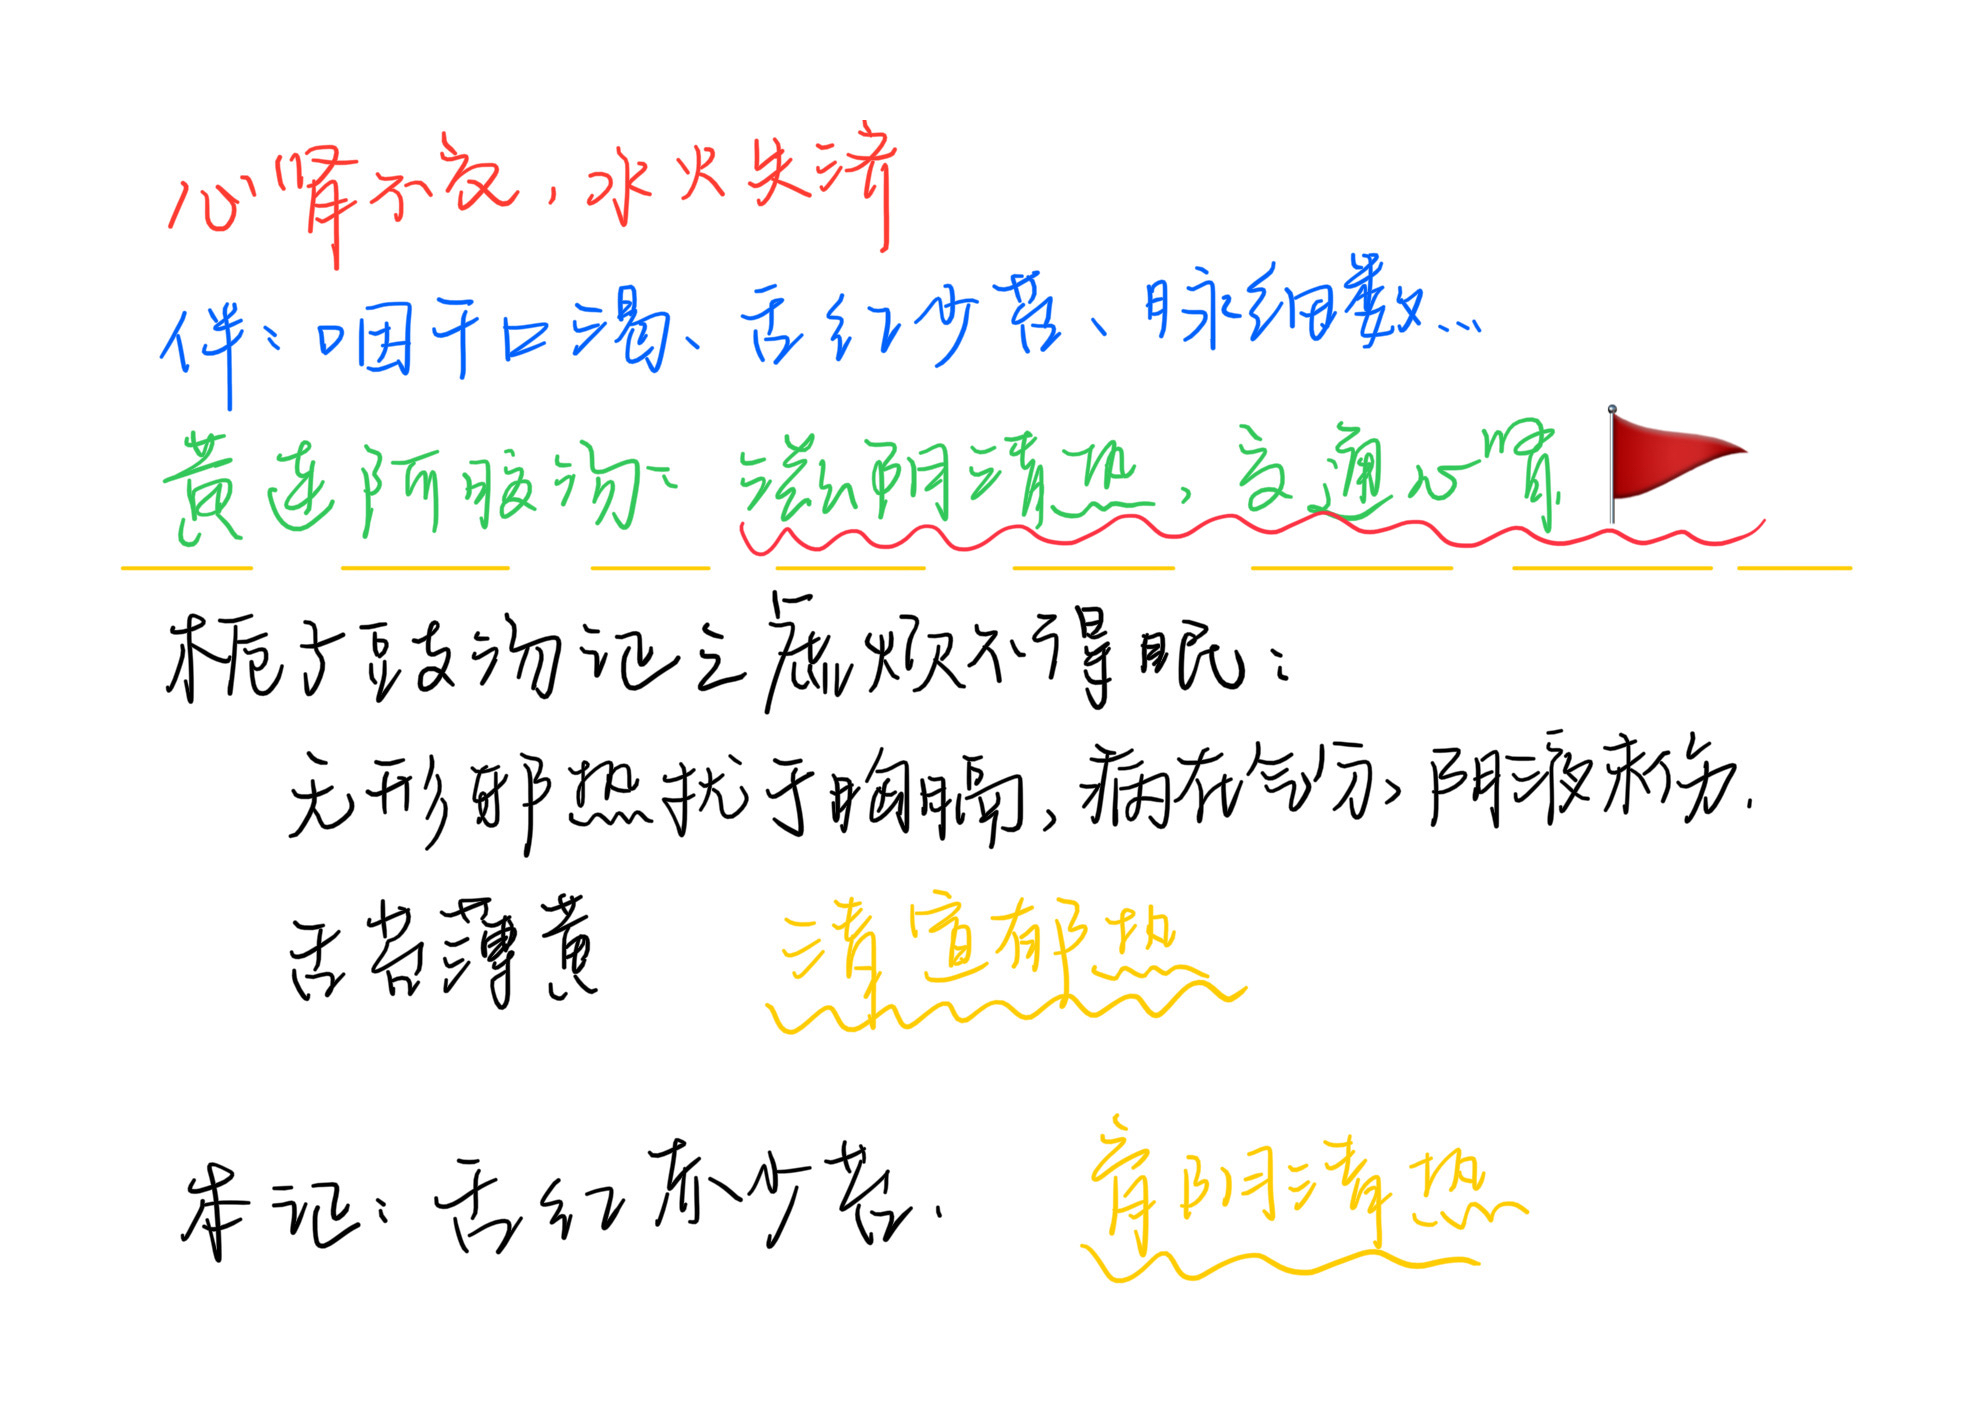 心肾不交,水火失济
伴:咽干口渴、舌红少苔、脉细数...
黄连阿胶汤:滋阴清热,交通心肾
栀子豉汤证之虚烦不得眠:
无形邪热扰于胸膈,病在气分,阴液未伤.
舌苔薄黄 清宣郁热
本证:舌红赤少苔. 育阴清热